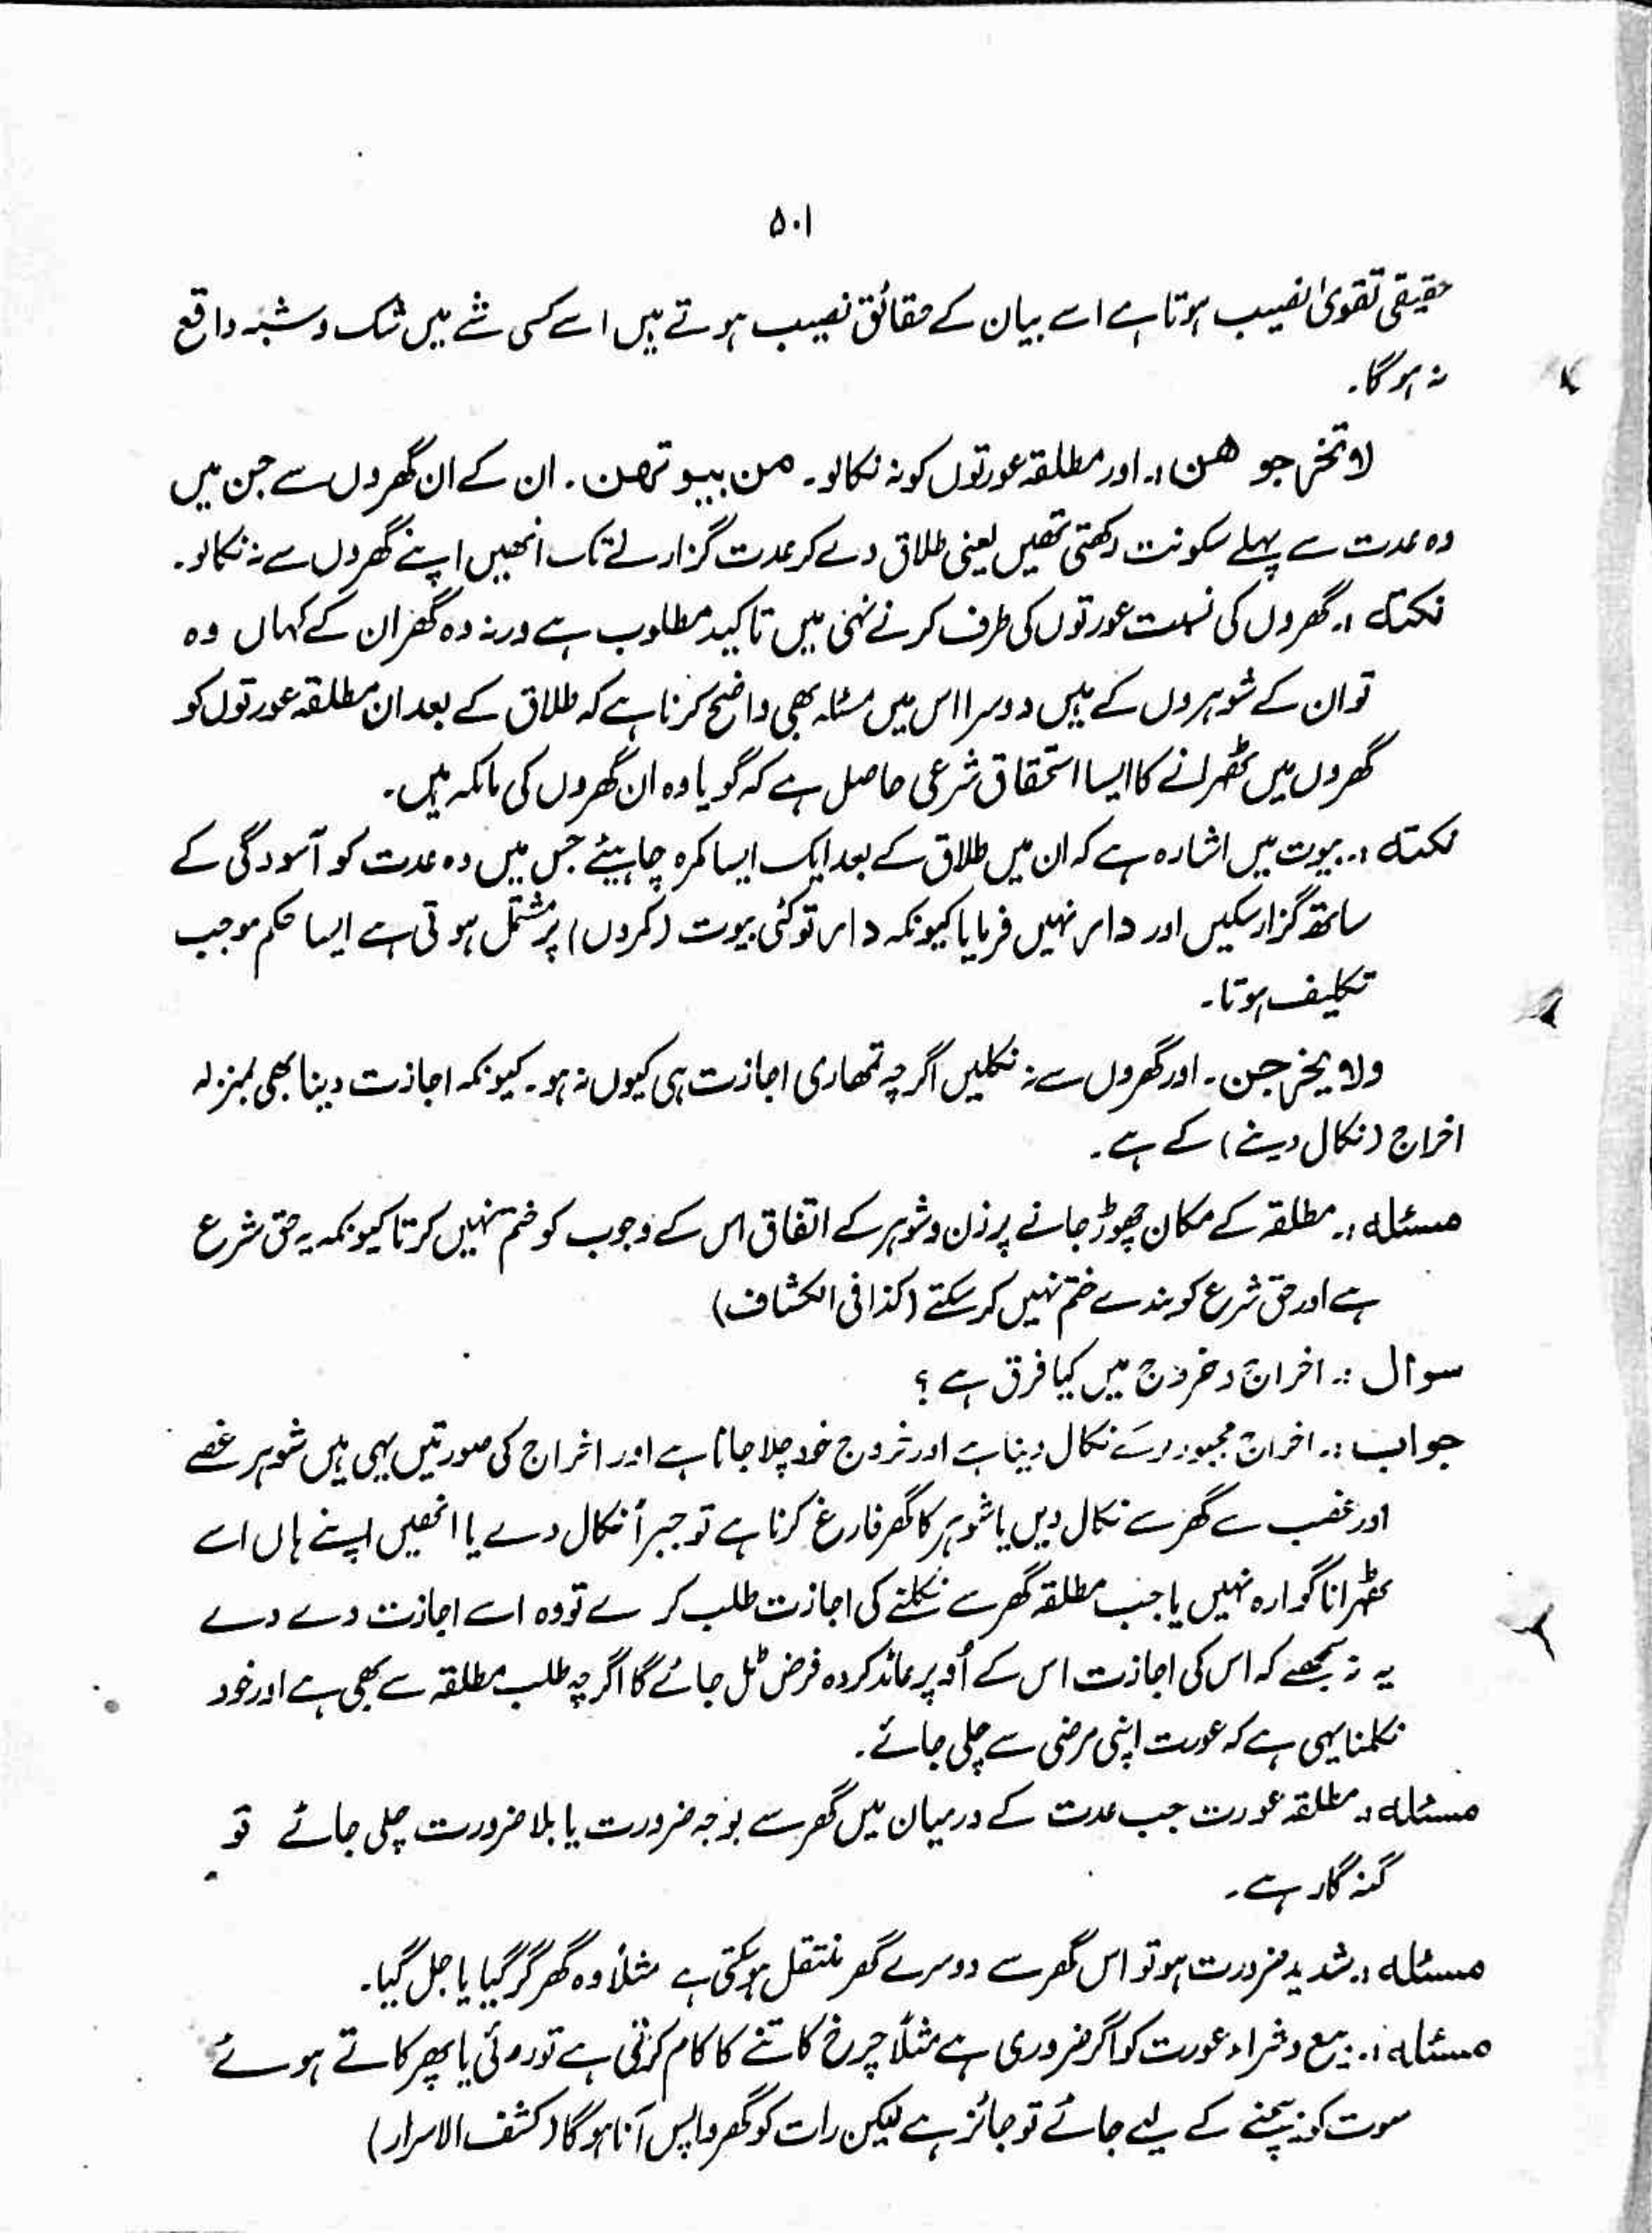 ۵۰۱
حقیقی تقویٰ نصیب ہوتا ہے اسے بیان کے حقائق نصیب ہوتے ہیں اسے کسی شے میں شک و شبہ واقع
نہ ہوگا۔
لا تخرجو ھن :۔ اور مطلقہ عورتوں کو نہ نکالو۔ من بیوتھن ۔ ان کے ان گھروں سے جن میں
وہ عدت سے پہلے سکونت رکھتی تھیں یعنی طلاق دے کر عدت گزارنے تک انھیں اپنے گھروں سے نہ نکالو۔
نکتہ :۔ گھروں کی نسبت عورتوں کی طرف کرنے نہی میں تاکید مطلوب ہے ورنہ وہ گھر ان کے کہاں وہ
تو ان کے شوہروں کے ہیں دوسرا اس میں مسئلہ بھی واضح کرنا ہے کہ طلاق کے بعد ان مطلقہ عورتوں کو
گھروں میں ٹھہرانے کا ایسا استحقاق شرعی حاصل ہے کہ گویا وہ ان گھروں کی مالکہ ہیں۔
نکتہ :۔ بیوت میں اشارہ ہے کہ ان میں طلاق کے بعد ایک ایسا کمرہ چاہیئے جس میں وہ عدت کو آسودگی کے
ساتھ گزار سکیں اور دار نہیں فرمایا کیونکہ دار تو کئی بیوت (کمروں) پر مشتمل ہوتی ہے ایسا حکم موجب
تکلیف ہوتا۔
ولا یخرجن ۔ اور گھروں سے نہ نکلیں اگرچہ تمھاری اجازت ہی کیوں نہ ہو۔ کیونکہ اجازت دینا بھی بمنزلہ
اخراج (نکال دینے) کے ہے۔
مسئلہ :۔ مطلقہ کے مکان چھوڑ جانے پر زن و شوہر کے اتفاق اس کے وجوب کو ختم نہیں کرتا کیونکہ یہ حق شرع
ہے اور حق شرع کو بندے ختم نہیں کر سکتے (کذا فی الکشاف)
سوال :۔ اخراج و خروج میں کیا فرق ہے ؟
جواب :۔ اخراج نکال دینا ہے اور خروج خود چلا جانا ہے اور اخراج کی صورتیں یہی ہیں شوہر غصے
اور غضب سے گھر سے نکال دیں یا شوہر کا گھر فارغ کرنا ہے تو جبراً نکال دے یا انھیں اپنے ہاں اسے
ٹھہرانا گوارہ نہیں یا جب مطلقہ گھر سے نکلنے کی اجازت طلب کرے تو وہ اسے اجازت دے دے
یہ نہ سمجھے کہ اس کی اجازت اس کے اُوپر عائد کردہ فرض ٹل جائے گا اگرچہ طلب مطلقہ سے بھی ہے اور خود
نکلنا یہی ہے کہ عورت اپنی مرضی سے چلی جائے۔
مسئلہ :۔ مطلقہ عورت جب عدت کے درمیان میں گھر سے بوجہ ضرورت یا بلا ضرورت چلی جائے تو
گنہ گار ہے۔
مسئلہ :۔ شدید ضرورت ہو تو اس گھر سے دوسرے گھر منتقل ہو سکتی ہے مثلاً وہ گھر گر گیا یا جل گیا۔
مسئلہ :۔ بیع و شراء عورت کو اگر ضروری ہے مثلاً چرخ کاتنے کا کام کرتی ہے تو روئی یا پھر کاتے ہوئے
سوت کو بیچنے کے لیے جائے تو جائز ہے لیکن رات کو گھر واپس آنا ہوگا (کشف الاسرار)